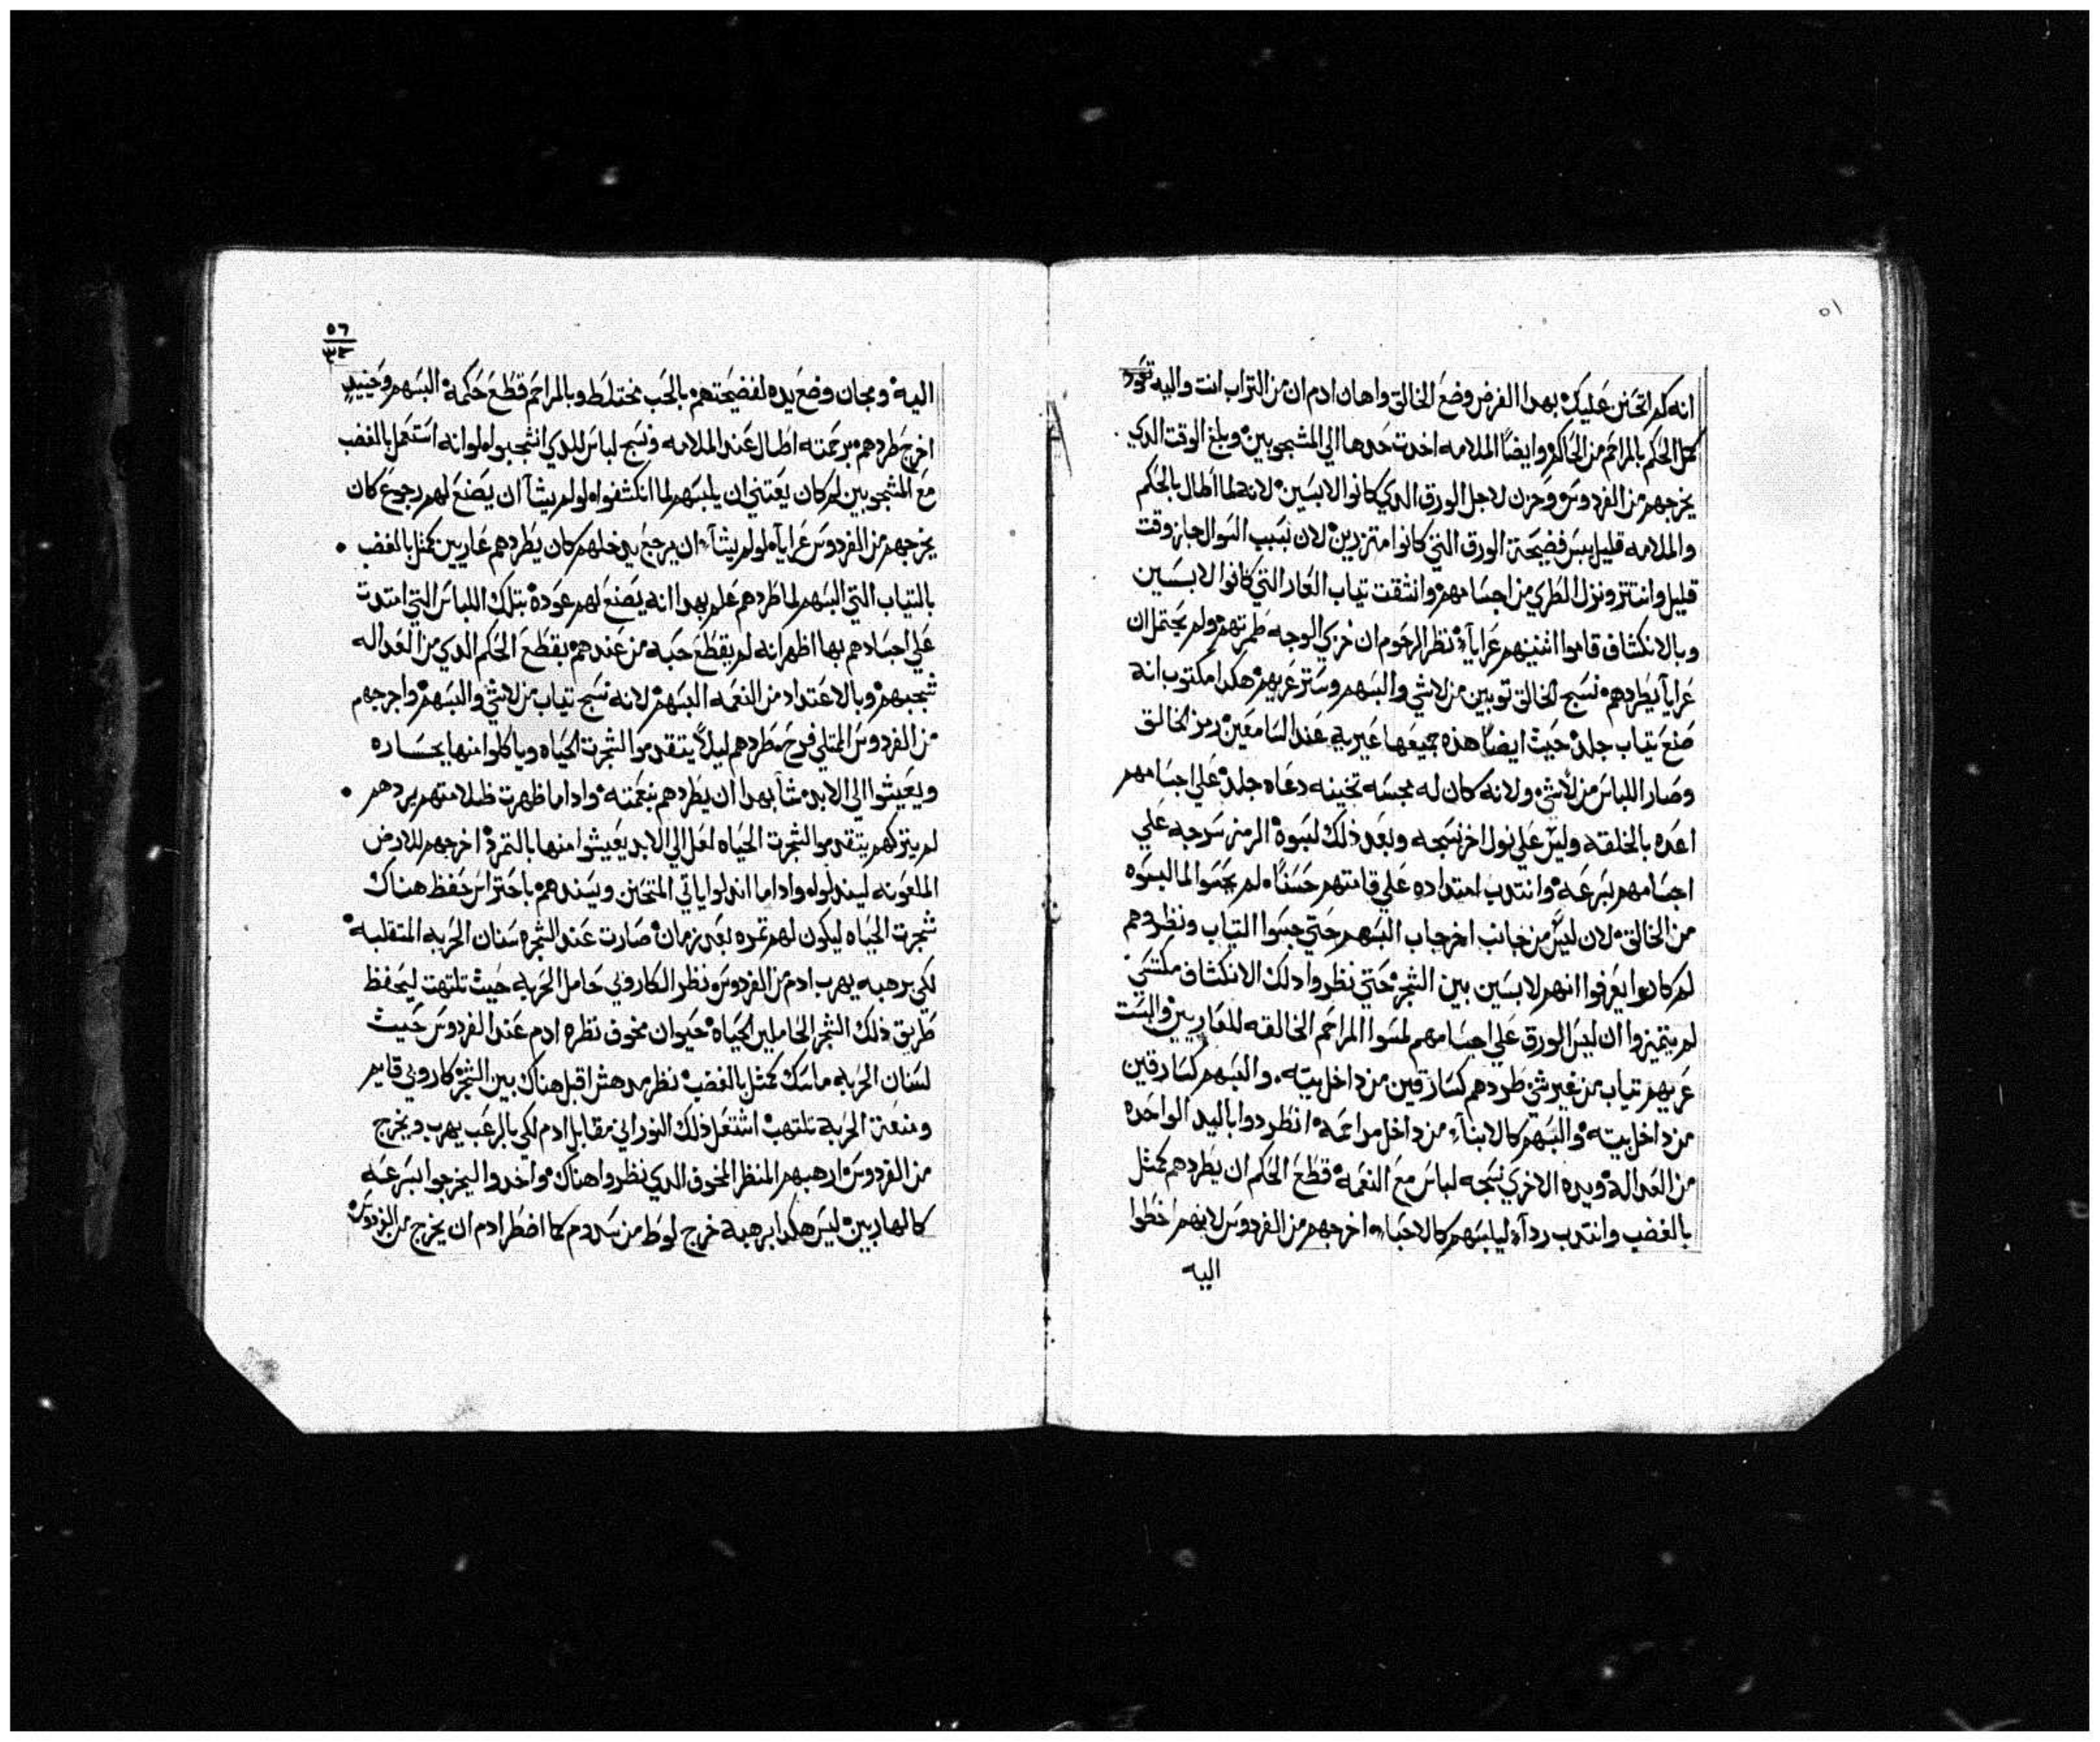 ٥١
انه كم اتحنن عليك بهدا الفرض وضع الخالق واهان ادم ان من التراب انت واليه تعود
كمل الحكم بالمراحم من الحاكم وايضًا الملامه اخدت حدها الي المشجوبين وبلغ الوقت الدي
يخرجهم من الفردوس وحزن لاجل الورق الدي كانوا لابسين لانه لما اطال بالحكم
والملامه قليل يبس فضيحة الورق التي كانوا متزرين لان بسبب السوال جاز وقت
قليل وانتتر ونزل الطري من اجسامهم وانشقت تياب العار التي كانوا لابسين
وبالانكشاف قاموا اثنينهم عرايآ نظر الرحوم ان خزي الوجه طمرتهم ولم يحتمل ان
عرايآ يطردهم نسج الخالق توبين من لاشي والبسهم وستر عريهم هكدا مكتوب انه
صنع تياب جلد حيث ايضًا هذه جميعها غيرية عند السامعين رمز الخالق
وصار اللباس من لاشي ولانه كان له مجسه تخينه دعاه جلد علي اجسامهم
اعده بالخلقه وليس علي نول اخر نسجه وبعد ذلك لبسوة الرمز سرجه علي
اجسامهم بسرعه وانتدب امتداده علي قامتهم حسنًا لم يحسوا لما لبسوه
من الخالق لان ليس من جانب اخر جاب البسهم حتي جسوا التياب ونظروهم
لم كانوا يعرفوا انهم لابسين بين الشجر حتي نظروا دلك الانكشاف مكتسي
لم يتميزوا ان ليس الورق علي اجسامهم لمسوا المراحم الخالقه للعاريين والبست
عريهم تياب من غير شي طردهم كسارقين من داخل بيته والبسهم كسارقين
من داخل بيته والبسهم كالابنآء من داخل مراحمه انطردوا باليد الواحده
من العداله ويده الاخري نسجه لباس مع النعمه قطع الحكم ان يطردهم كمثل
بالغضب وانتدب ردآء ليلبسهم كالاحباء اخرجهم من الفردوس لانهم اخطوا
اليه
٥٦
٣٢
اليه ومجان وضع يده لفضيحتهم بالحب مختلط وبالمراحم قطع حكمه البسهم وحينيدٍ
اخرج طردهم برحمته اطال عند الملامه ونسج لباس للدي انشجبوا لو انه استعمل بالغضب
مع المشجوبين لم كان يعتني ان يلبسهم لما انكشفوا لو لم يشآ ان يصنع لهم رجوع كان
يخرجهم من الفردوس عرايآ لو لم يشآء ان يرجع يدخلهم كان يطردهم عاريين كمثل بالغضب
بالتياب التي البسهم لما طردهم علم بهدا انه يصنع لهم عودة بتلك اللباس التي امتدت
علي اجسادهم بها اظهر انه لم يقطع حبه من عندهم بقطع الحكم الدي من العداله
شجبهم وبالاعتداد من النعمه البسهم لانه نسج تياب من لاشي والبسهم واخرجهم
من الفردوس الممتلي فرح طردهم ليلًا يتقدموا لشجرت الحياه وياكلوا منها بخساره
ويعيشوا الي الابد شآ بهدا ان يطردهم بنعمته وادا ما ظهرت ظلامتهم يردهم
لم يتركهم يتقدموا لشجرت الحياه لعل الي الابد يعيشوا منها بالتمرد اخرجهم للارض
الملعونه ليندلوا وادا ما اندلوا ياتي المتحنن ويسندهم باحتراس حفظ هناك
شجرت الحياه ليكون لهم تمره بعد زمان صارت عند الشجره سنان الحربه المتقلبه
لكي برهبه يهرب ادم من الفردوس نظر الكاروبي حامل الحربه حيث تلتهت ليحفظ
طريق ذلك الشجر الحاملين الحياه حيوان مخوف نظره ادم عند الفردوس حيث
لسنان الحربه ماسك كمثل بالغضب نظر مدهش اقبل هناك بين الشجر كاروبي قايم
ومنعة الحربة تلتهب اشتعل ذلك النوراني مقابل ادم لكي بالرعب يهرب ويخرج
من الفردوس ارهبهم المنظر المخوف الدي نظروا هناك واخدوا ليخرجوا بسرعه
كالهاربين ليس هكدا برهبة خرج لوط من سدوم كما اضطر ادم ان يخرج من الفردوس